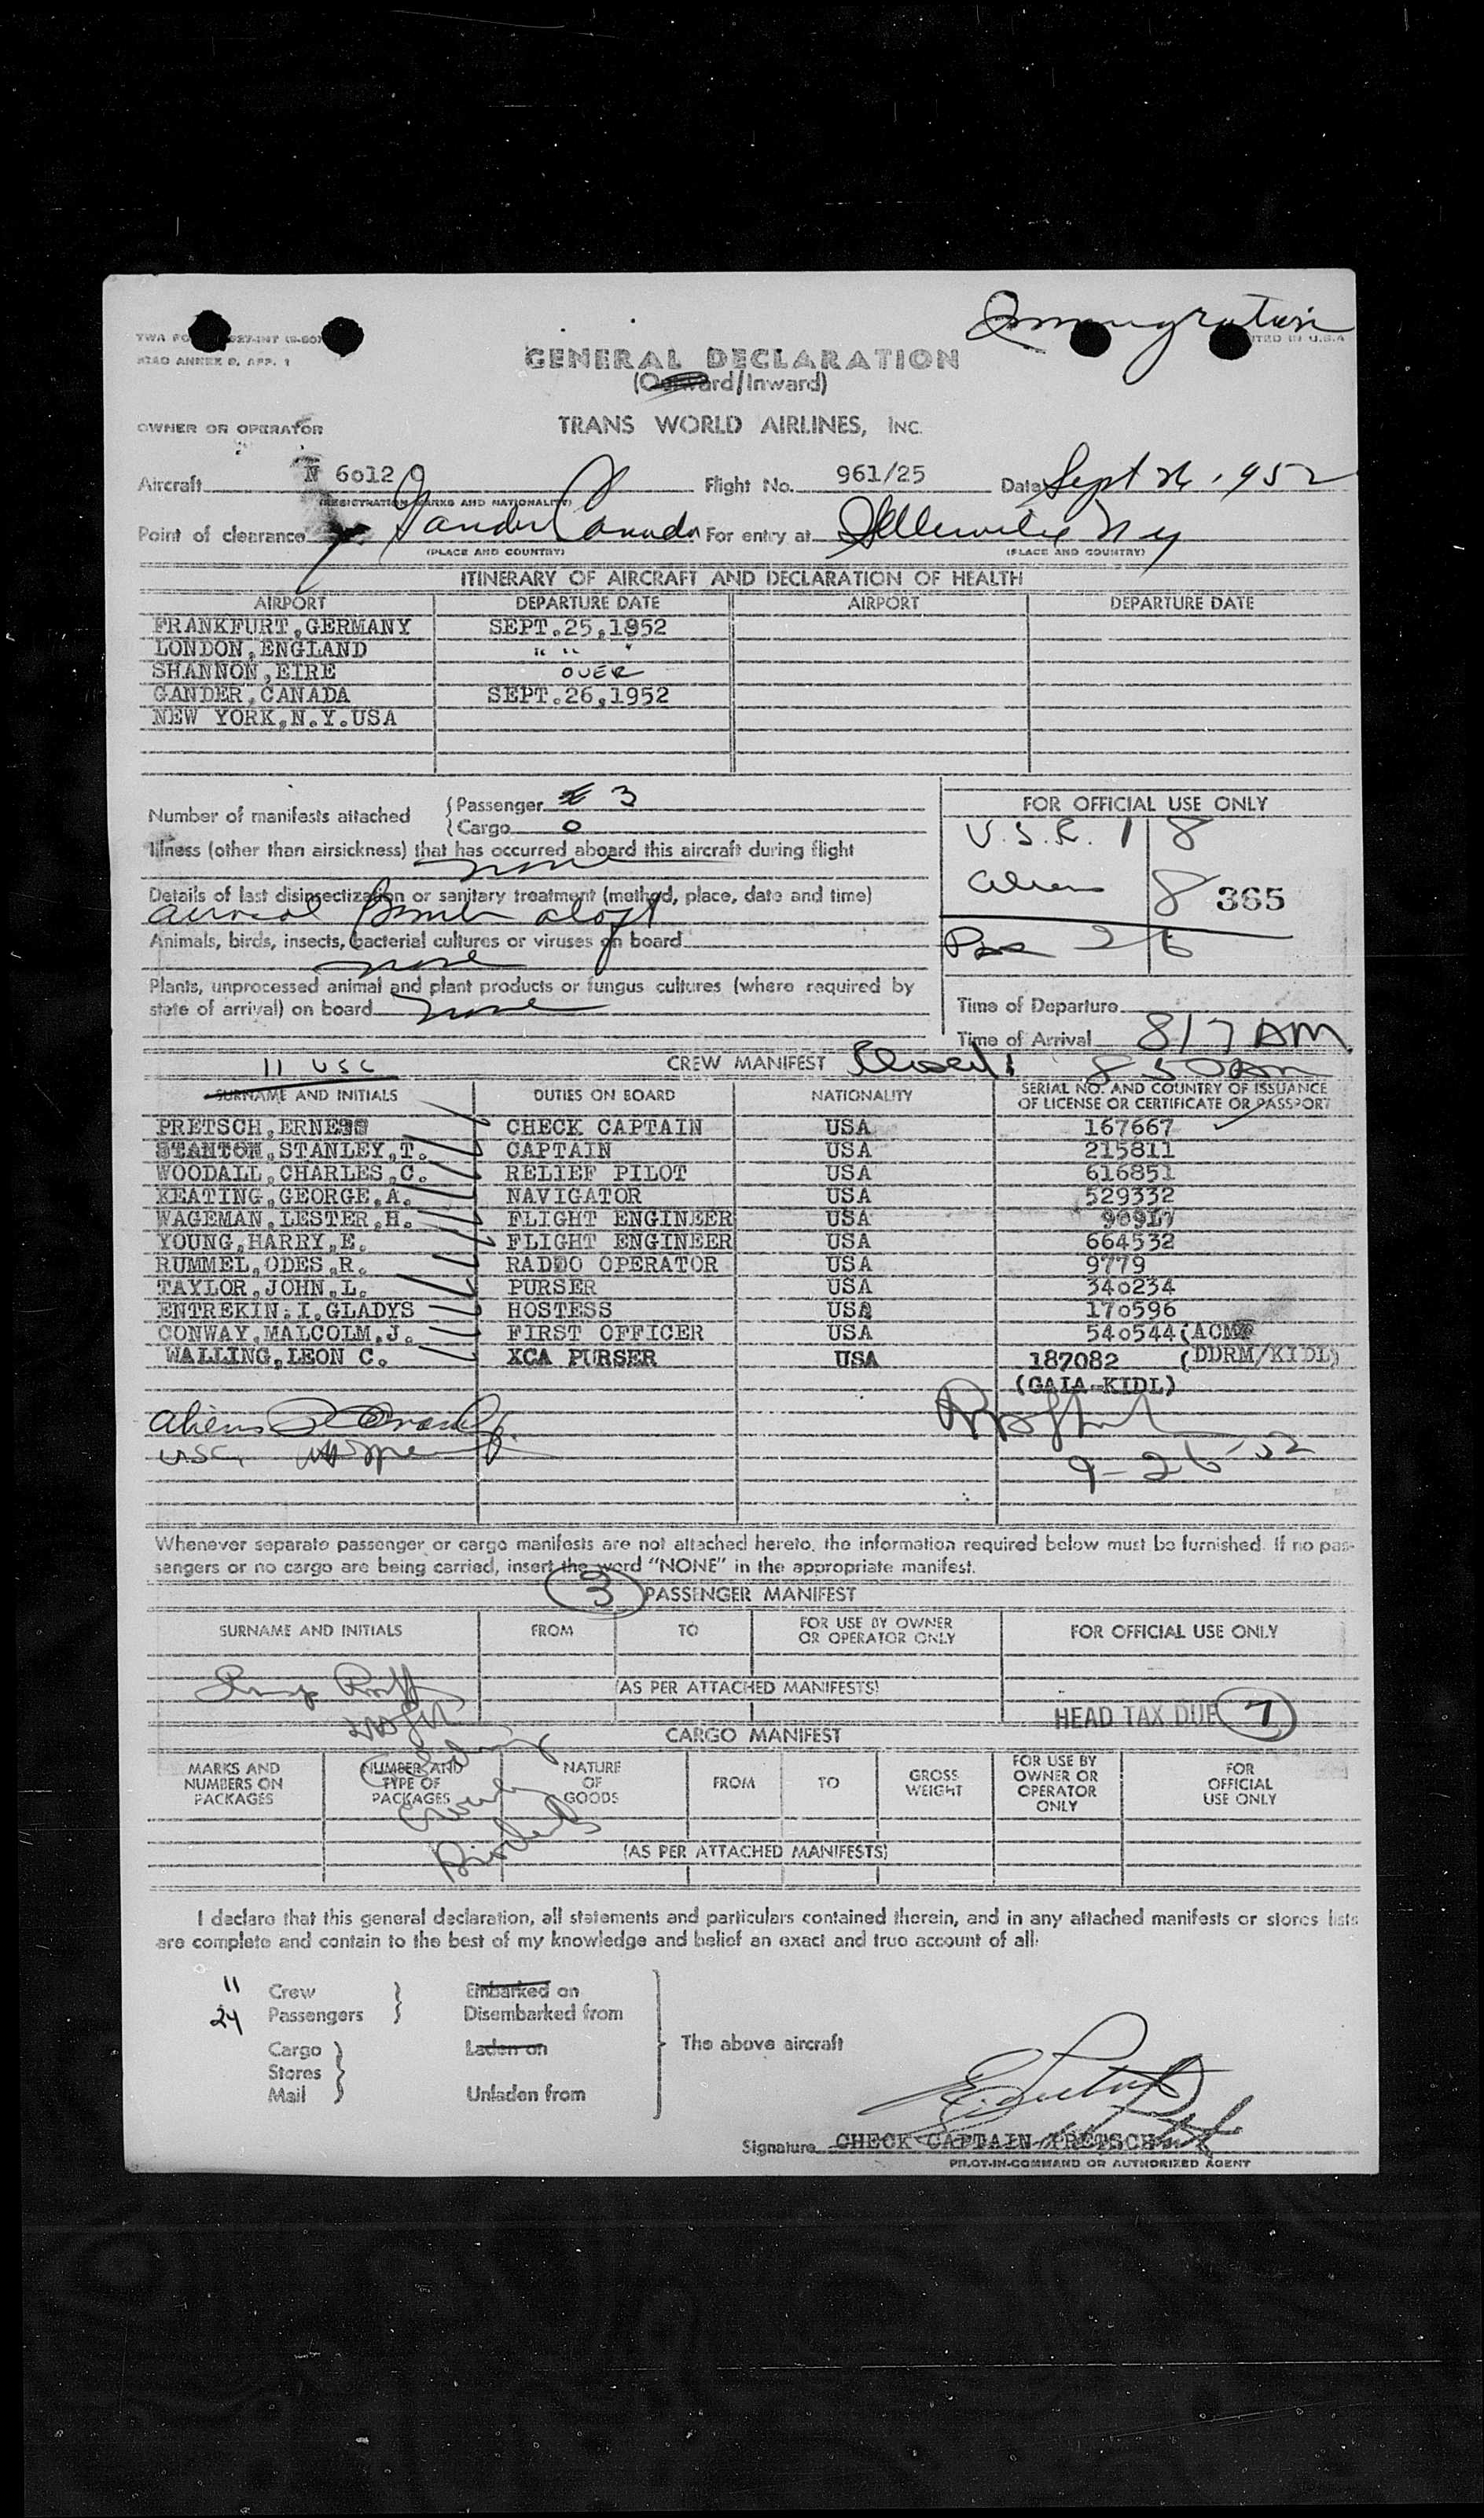 Immigration
TWA FO 927-INT (9-50)
ICAO ANNEX 9, APP. 1
GENERAL DECLARATION
(Outward/Inward)
OWNER OR OPERATOR TRANS WORLD AIRLINES, INC.
Aircraft N 6012 Flight No. 961/25 Date Sept 26, 1952
(REGISTRATION MARKS AND NATIONALITY)
Point of clearance Gander Canada For entry at Idlewild N Y
(PLACE AND COUNTRY) (PLACE AND COUNTRY)
ITINERARY OF AIRCRAFT AND DECLARATION OF HEALTH
AIRPORT DEPARTURE DATE AIRPORT DEPARTURE DATE
FRANKFURT,GERMANY SEPT.25,1952
LONDON,ENGLAND " " "
SHANNON,EIRE OVER
GANDER,CANADA SEPT.26,1952
NEW YORK,N.Y.USA
Number of manifests attached
Passenger 3
Cargo 0
Illness (other than airsickness) that has occurred aboard this aircraft during flight
none
Details of last disinsectization or sanitary treatment (method, place, date and time)
aerosol Bomb aloft
Animals, birds, insects, bacterial cultures or viruses on board
none
Plants, unprocessed animal and plant products or fungus cultures (where required by
state of arrival) on board none
FOR OFFICIAL USE ONLY
8
Alien 8 365
26
Time of Departure
Time of Arrival 817 AM
11 USC CREW MANIFEST Closed: 850 AM
SURNAME AND INITIALS DUTIES ON BOARD NATIONALITY SERIAL NO. AND COUNTRY OF ISSUANCE
OF LICENSE OR CERTIFICATE OR PASSPORT
PRETSCH,ERNESS CHECK CAPTAIN USA 167667
STANTON,STANLEY,T. CAPTAIN USA 215811
WOODALL,CHARLES,C. RELIEF PILOT USA 616851
KEATING,GEORGE,A. NAVIGATOR USA 529332
WAGEMAN,LESTER,H. FLIGHT ENGINEER USA
YOUNG,HARRY,E. FLIGHT ENGINEER USA 664532
RUMMEL,ODES,R. RADIO OPERATOR USA 9779
TAYLOR,JOHN,L. PURSER USA 340234
ENTREKIN.I.GLADYS HOSTESS USA 170596
CONWAY,MALCOLM,J. FIRST OFFICER USA 540544(ACMF
WALLING,LEON C. XCA PURSER USA 187082 (DDRM/KIDL)
(GAIA-KIDL)
Aliens
USC,
9-26-52
Whenever separate passenger or cargo manifests are not attached hereto, the information required below must be furnished. If no pas-
sengers or no cargo are being carried, insert the word "NONE" in the appropriate manifest.
3 PASSENGER MANIFEST
SURNAME AND INITIALS FROM TO FOR USE BY OWNER
OR OPERATOR ONLY FOR OFFICIAL USE ONLY
(AS PER ATTACHED MANIFESTS)
HEAD TAX DUE 7
CARGO MANIFEST
MARKS AND
NUMBERS ON
PACKAGES
NUMBER AND
TYPE OF
PACKAGES
NATURE
OF
GOODS
FROM
TO
GROSS
WEIGHT
FOR USE BY
OWNER OR
OPERATOR
ONLY
FOR
OFFICIAL
USE ONLY
(AS PER ATTACHED MANIFESTS)
I declare that this general declaration, all statements and particulars contained therein, and in any attached manifests or stores lists
are complete and contain to the best of my knowledge and belief an exact and true account of all:
11 Crew Embarked on
24 Passengers Disembarked from
Cargo Laden on
Stores
Mail Unladen from
The above aircraft
Signature CHECK CAPTAIN PRETSCH
PILOT-IN-COMMAND OR AUTHORIZED AGENT